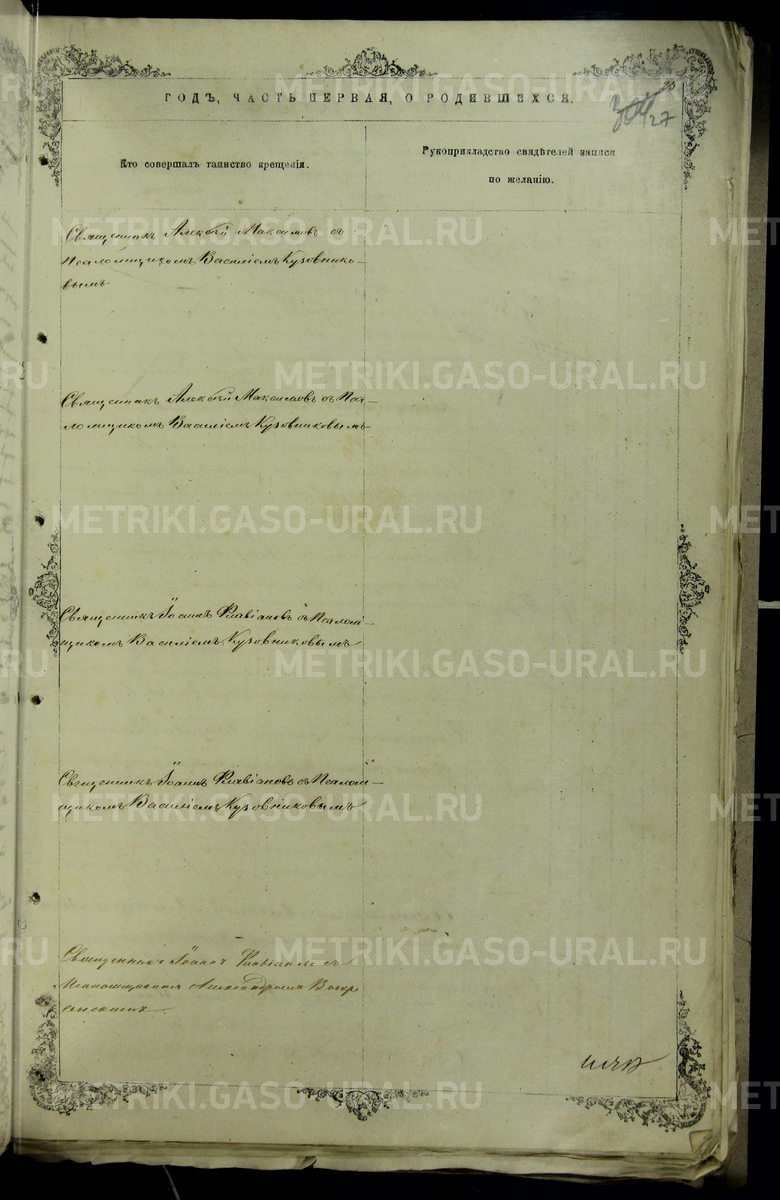 ГОДЪ, ЧАСТЬ ПЕРВАЯ, О РОДИВШИХСЯ.
27
Кто совершалъ таинство крещенія.
Рукоприкладство свидѣтелей записи
по желанію.
Священникъ Алексѣй Максимовъ съ
Псаломщикомъ Василіемъ Кузовнико-
вымъ
Священникъ Алексѣй Максимовъ съ Пса-
ломщикомъ Василіемъ Кузовниковымъ
Священникъ Іоаннъ Флавіановъ съ Псалом-
щикомъ Василіемъ Кузовниковымъ
Священникъ Іоаннъ Флавіановъ съ Псалом-
щикомъ Василіемъ Кузовниковымъ
Священникъ Іоаннъ съ
Псаломщикомъ Александромъ Воскре
сенскимъ
METRIKI.GASO-URAL.RU